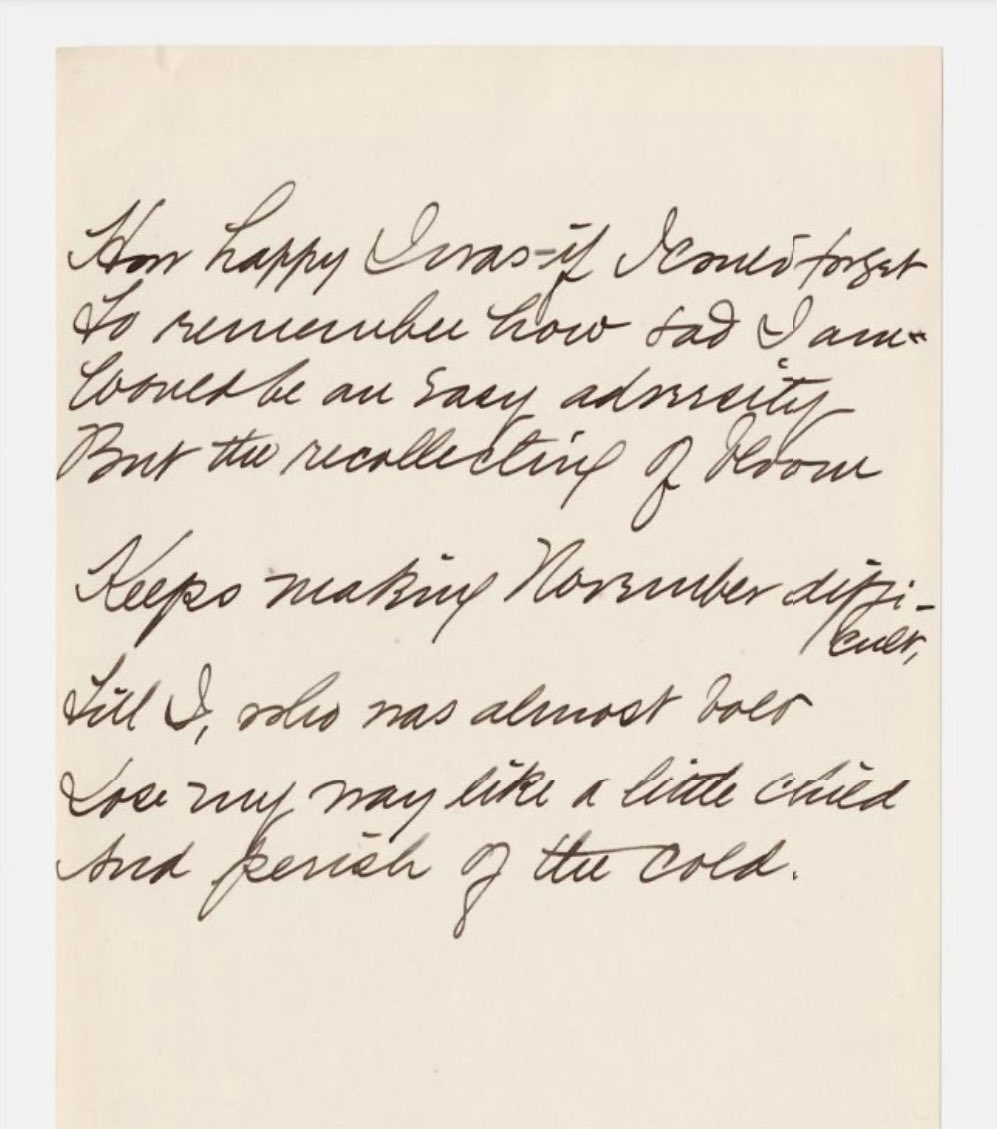 How happy I was - if I could forget
To remember how sad I am -
Would be an easy adversity
But the recollecting of bloom
Keeps making November diffi-
cult,
Till I, who was almost bold
Lose my way like a little child
And perish of the cold.